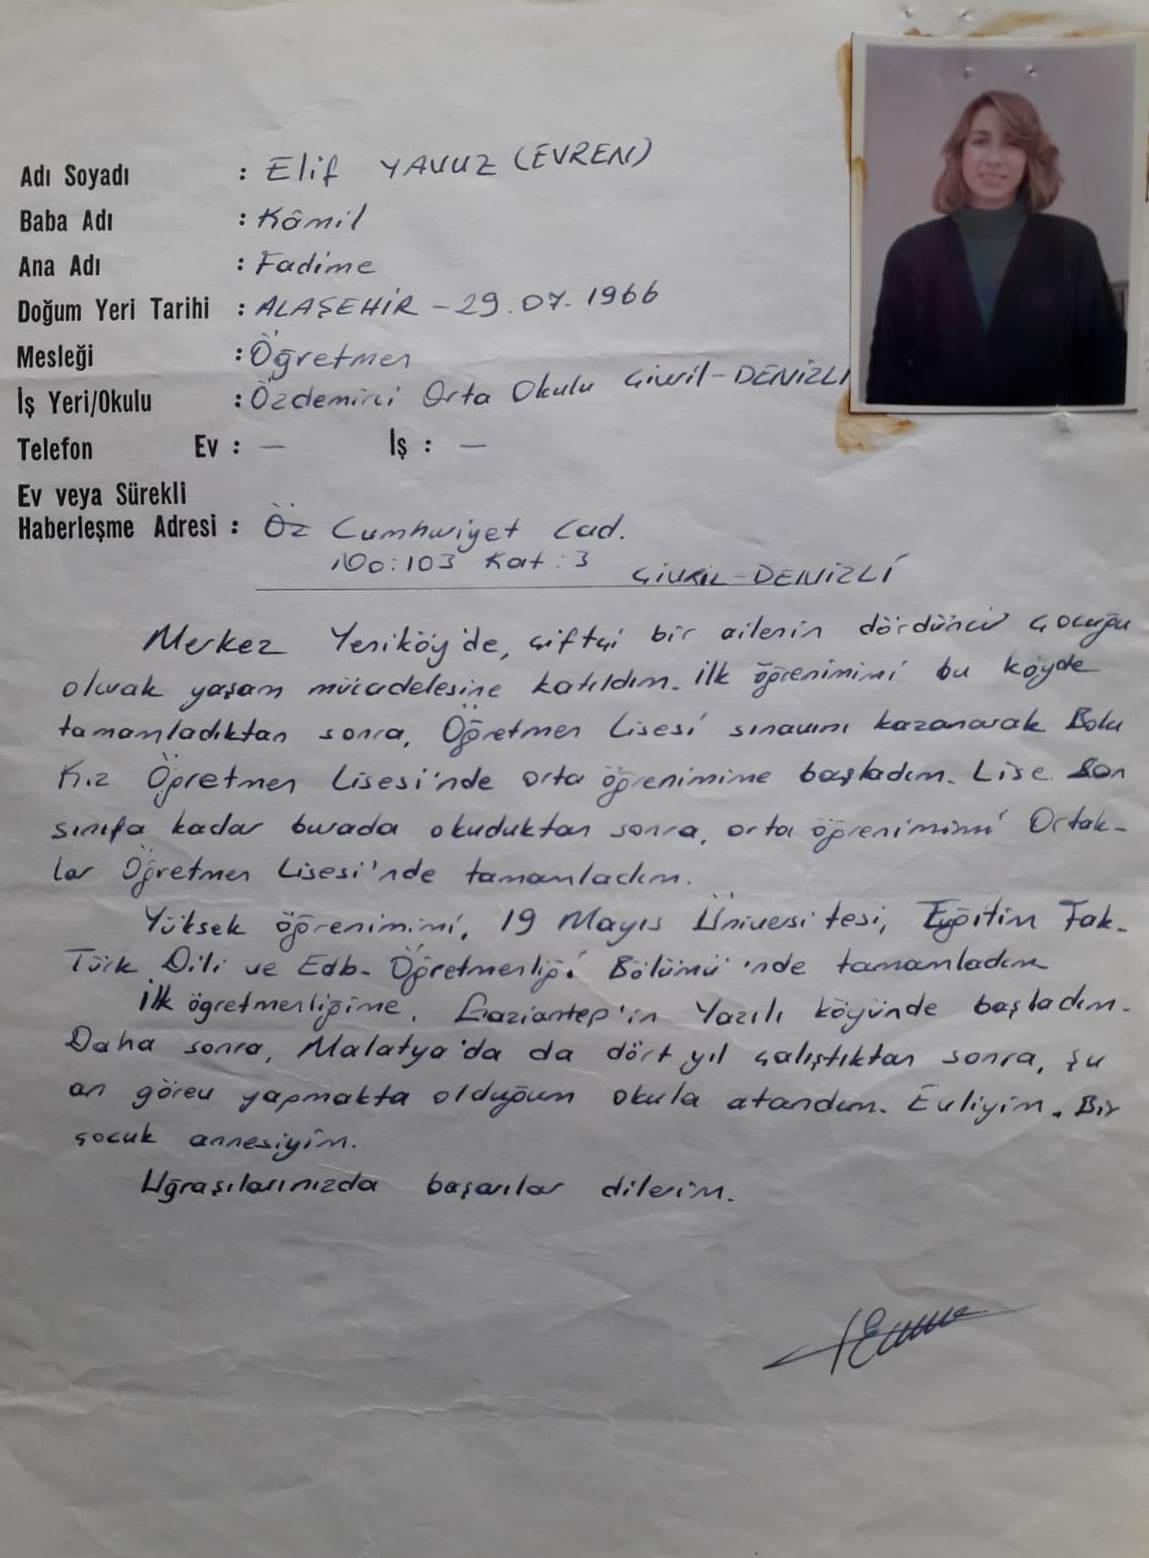 Adı Soyadı : Elif YAVUZ (EVREN)
Baba Adı : Kâmil
Ana Adı : Fadime
Doğum Yeri Tarihi : ALAŞEHİR - 29.07.1966
Mesleği : Öğretmen
İş Yeri/Okulu : Özdemirci Orta Okulu Çivril-DENİZLİ
Telefon Ev : — İş : —
Ev veya Sürekli
Haberleşme Adresi : Öz Cumhuriyet Cad.
No:103 Kat:3 ÇİVRİL-DENİZLİ
Merkez Yeniköy'de, çiftçi bir ailenin dördüncü çocuğu
olarak yaşam mücadelesine katıldım. İlk öğrenimimi bu köyde
tamamladıktan sonra, Öğretmen Lisesi sınavını kazanarak Bolu
Kız Öğretmen Lisesi'nde orta öğrenimime başladım. Lise son
sınıfa kadar burada okuduktan sonra, orta öğrenimimi Ortak-
lar Öğretmen Lisesi'nde tamamladım.
Yüksek öğrenimimi, 19 Mayıs Üniversitesi, Eğitim Fak.
Türk Dili ve Edb. Öğretmenliği Bölümü'nde tamamladım
İlk öğretmenliğime, Gaziantep'in Yazılı köyünde başladım.
Daha sonra, Malatya'da da dört yıl çalıştıktan sonra, şu
an görev yapmakta olduğum okula atandım. Evliyim. Bir
çocuk annesiyim.
Uğraşılarınızda başarılar dilerim.